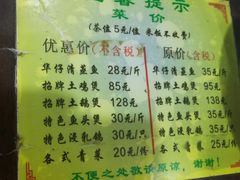 提示
菜价
(茶位5元/位 米饭不收费)
优惠价(不含税) 原价(含税)
华仔清蒸鱼 28元/斤 华仔清蒸鱼 35元/斤
招牌土鸡煲 85元 招牌土鸡煲 95元
招牌土鹅煲 128元 招牌土鹅煲 138元
特色鱼头煲 30元/斤 特色鱼头煲 35元/斤
特色浸乳鸽 30元/只 特色浸乳鸽 35元/只
各式青菜 20元/份 各式青菜 25元/份
不便之处敬请原谅，谢谢！